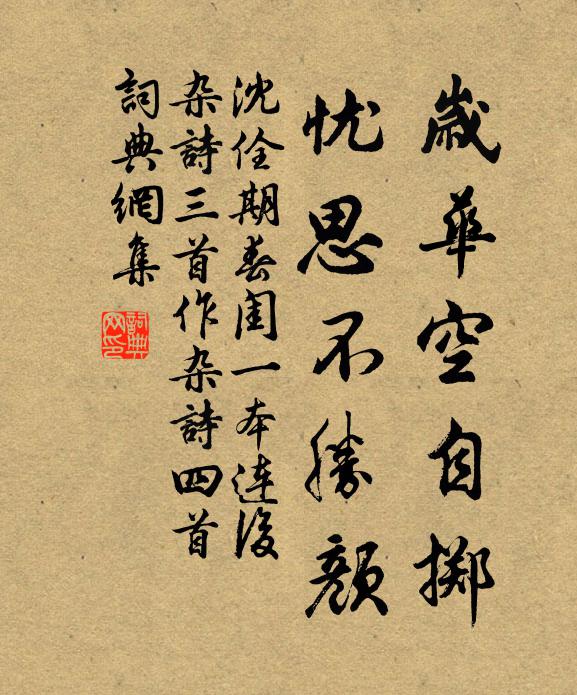 歲華空自擲
忧思不勝顏
沈佺期春閨一本連後
杂詩三首作杂詩四首
詞典網集
詞典网印